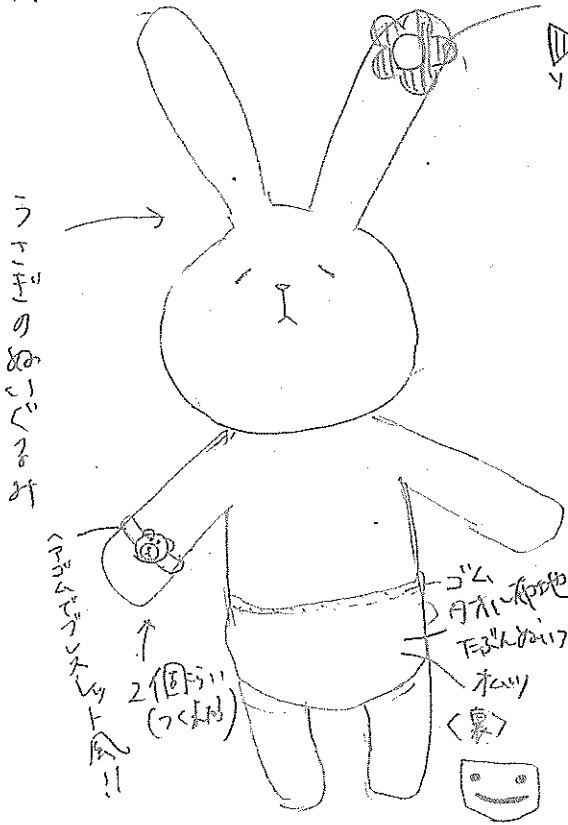 うさぎのぬいぐるみ
ヘアゴムでブレスレット風!!
2個ぐらい
ゴム
タオル布地
たぶんぬいつ
オムツ
<裏>